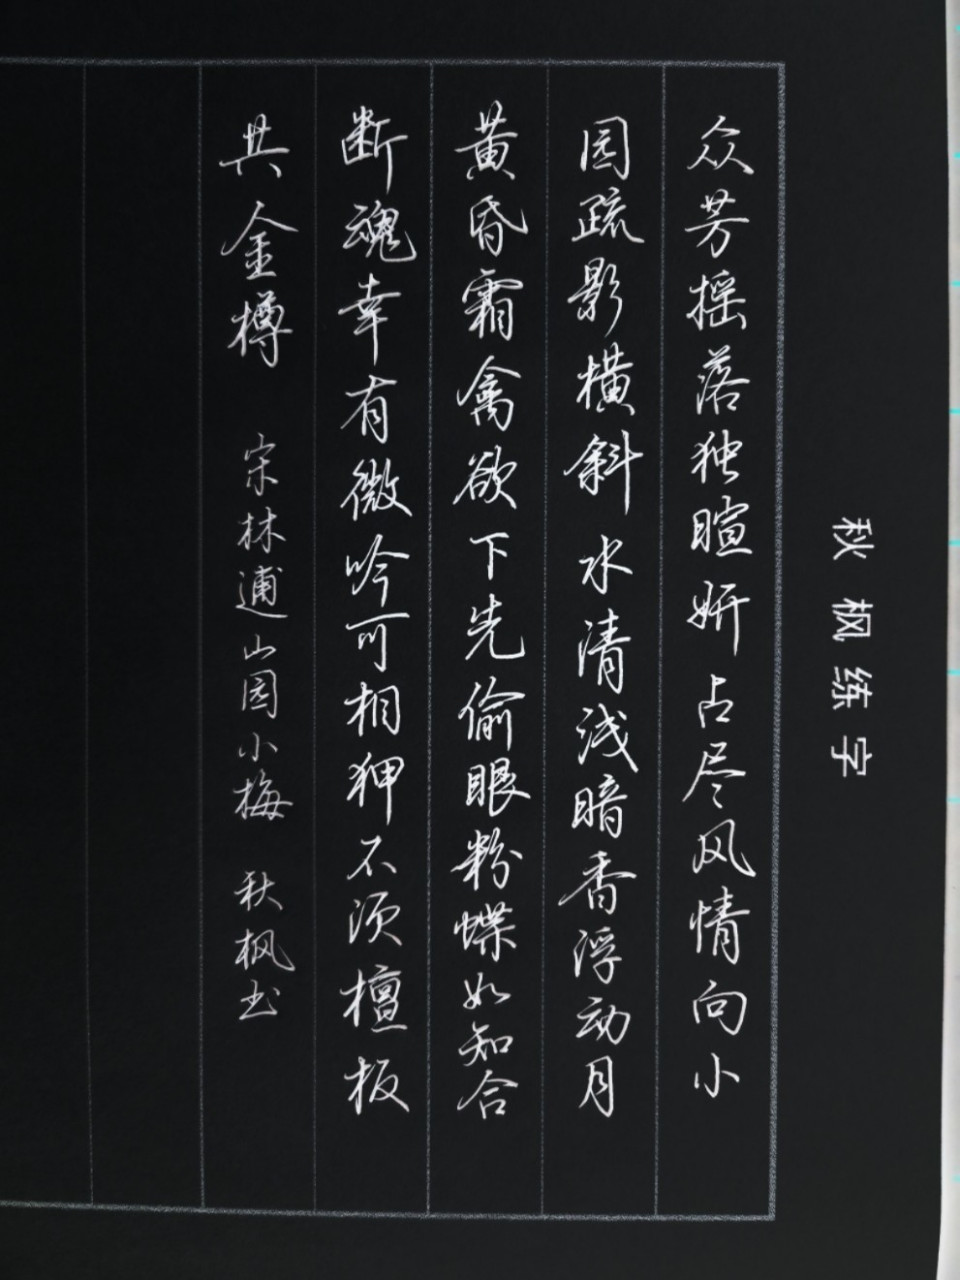 秋枫练字
众芳摇落独暄妍占尽风情向小
园疏影横斜水清浅暗香浮动月
黄昏霜禽欲下先偷眼粉蝶如知合
断魂幸有微吟可相狎不须檀板
共金樽 宋林逋山园小梅 秋枫书